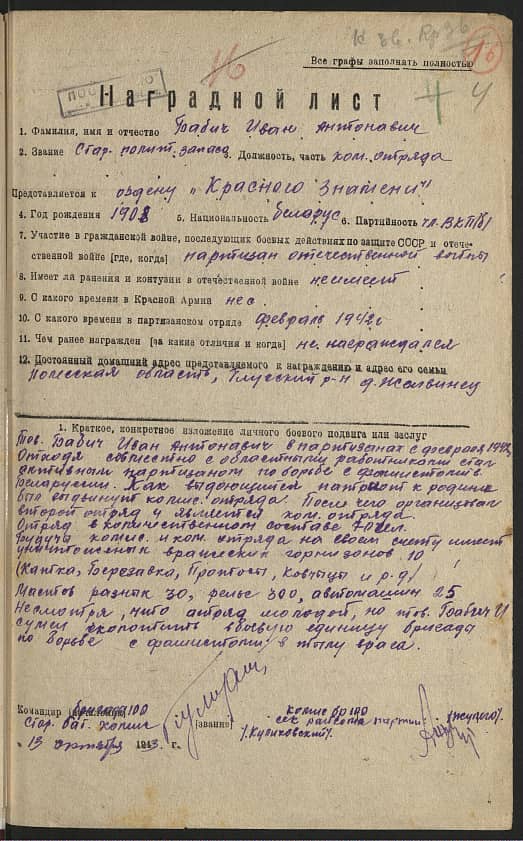 16
16
4
Все графы заполнять полностью
Наградной лист
1. Фамилия, имя и отчество Бабич Иван Антонавич
2. Звание Стар. полит. запаса 3. Должность, часть ком. отряда
Представляется к ордену „Красного Знамени"
4. Год рождения 1908 5. Национальность беларус 6. Партийность чл. ВКП(б)
7. Участие в гражданской войне, последующих боевых действиях по защите СССР и отече-
ственной войне [где, когда] партизан отечественной войны
8. Имеет ли ранения и контузии в отечественной войне неимеет
9. С какого времени в Красной Армии нет
10. С какого времени в партизанском отряде февраль 1942г
11. Чем ранее награжден [за какие отличия и когда] не награждался
12. Постоянный домашний адрес представляемого к награждению и адрес его семьи
Полесская область, Глусский р-н д. Жолвинец
1. Краткое, конкретное изложение личного боевого подвига или заслуг
Тов. Бабич Иван Антонавич в партизанах с февраля 1942г
Отходя совместно с областными работниками стал
активным партизаном по борьбе с фашистами в
Беларуссии. Как выдающийся патриот к родине
был выдвинут комис. отряда. После чего организовал
второй отряд и является ком. отряда.
Отряд в количественном составе 70 чел.
Будучи комис. и ком. отряда на своем счету имеет
уничтоженых вражеских горнизонов 10
(Катка, Березавка, Протасы, Ковчицы и р.д/
Мастов разных 30, рельс 300, автомашин 25
Несмотря, что отряд молодой, но тов. Бабич И
сумел сколотить в боевую единицу бригады
по борьбе с фашистами в тылу врага.
Командир бригады 100 комис бр 100
Стар. бат. комис [звание] сек райкома партии
/Куликовский/.
„ 13 октября 1943 г.